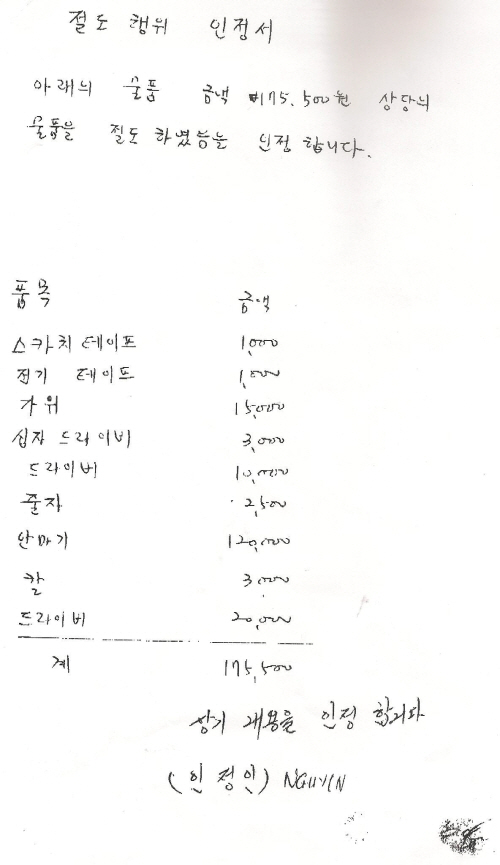 절도 행위 인정서
아래의 물품 금액 ₩175,500원 상당의
물품을 절도 하였음을 인정 합니다.
품목 금액
스카치 테이프 1,000
전기 테이프 1,000
가위 15,000
십자 드라이버 3,000
드라이버 10,000
줄자 2,500
안마기 120,000
칼 3,000
드라이버 20,000
계 175,500
상기 내용을 인정 합니다
(인정인) NGUYEN